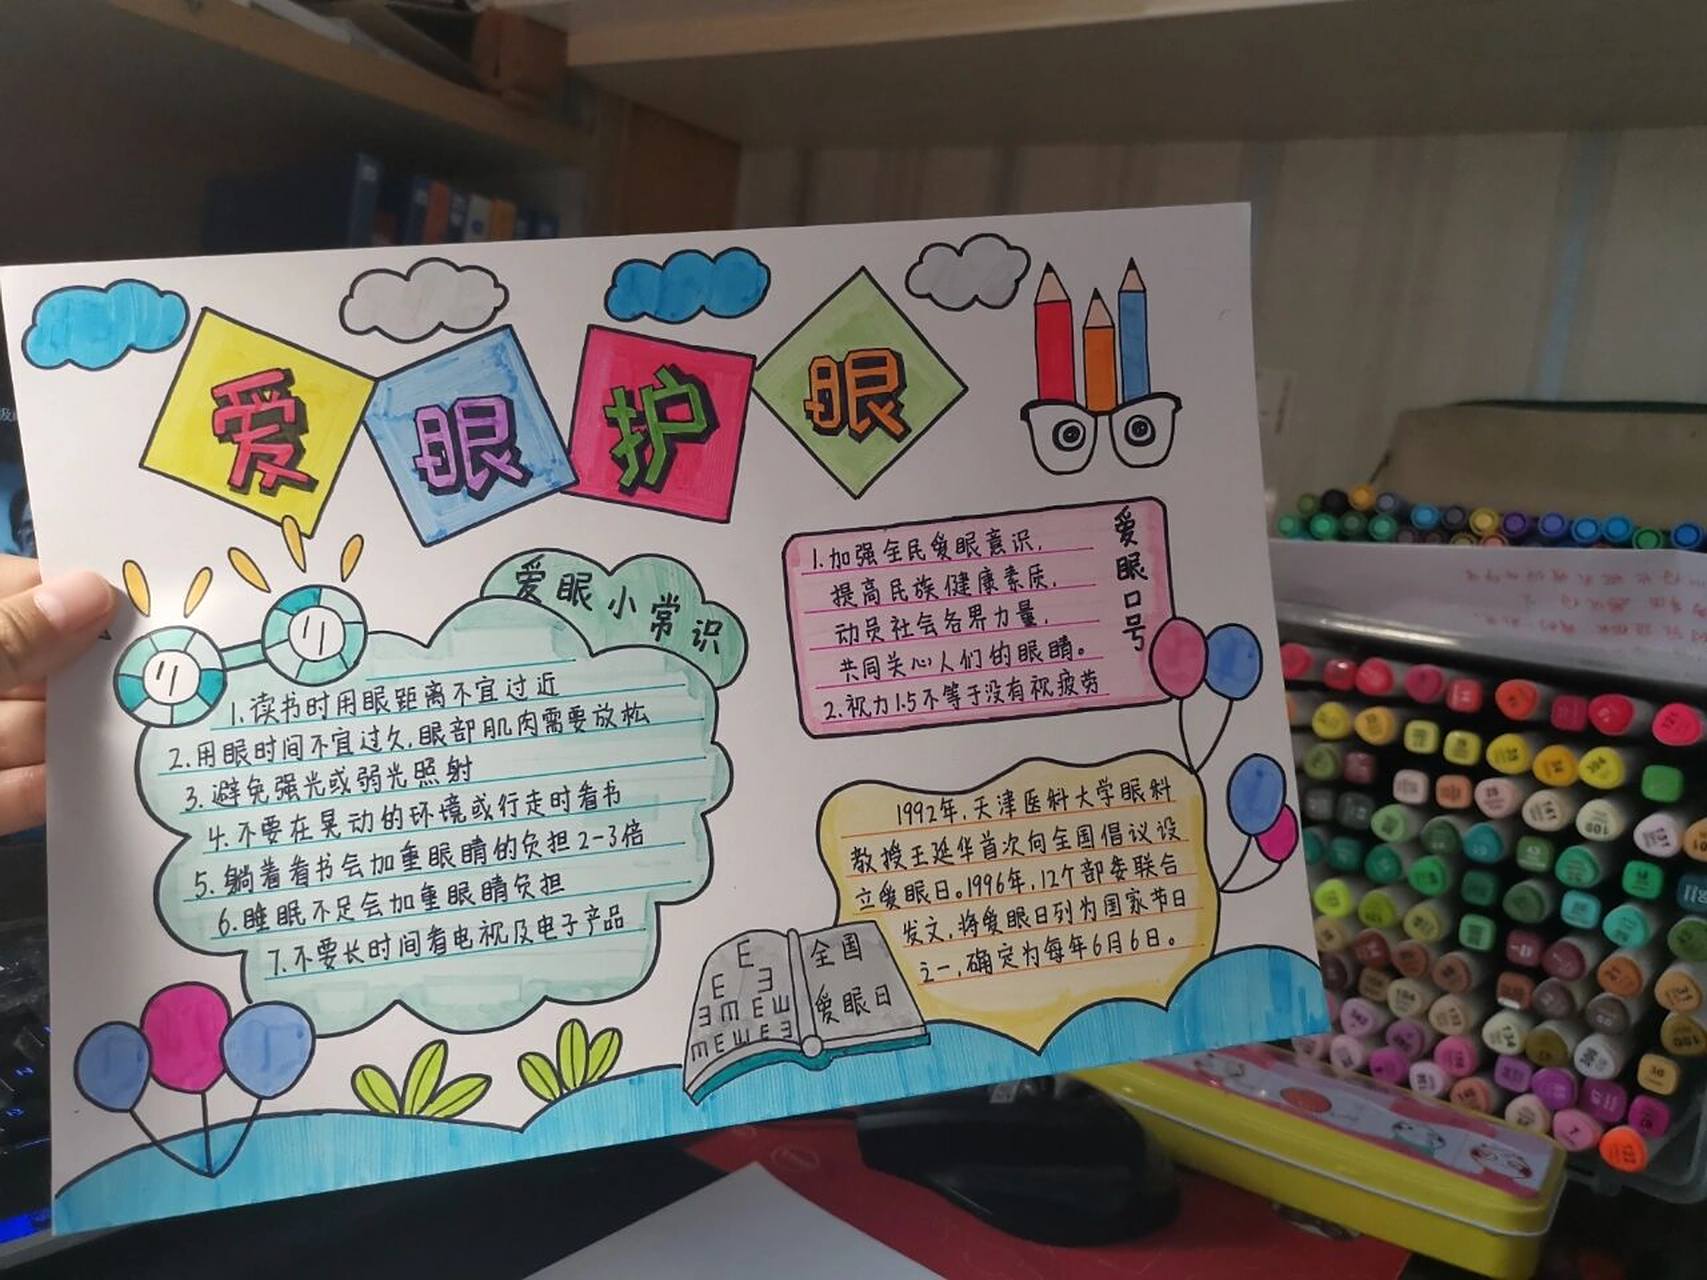 爱眼护眼
爱眼小常识
1.读书时用眼距离不宜过近
2.用眼时间不宜过久,眼部肌肉需要放松
3.避免强光或弱光照射
4.不要在晃动的环境或行走时看书
5.躺着看书会加重眼睛的负担2-3倍
6.睡眠不足会加重眼睛负担
7.不要长时间看电视及电子产品
爱眼口号
1.加强全民爱眼意识,
提高民族健康素质,
动员社会各界力量,
共同关心人们的眼睛。
2.视力1.5不等于没有视疲劳
1992年,天津医科大学眼科
教授王延华首次向全国倡议设
立爱眼日。1996年,12个部委联合
发文,将爱眼日列为国家节日
之一,确定为每年6月6日。
全国
爱眼日
E
E E
E E E E E
E E E E E